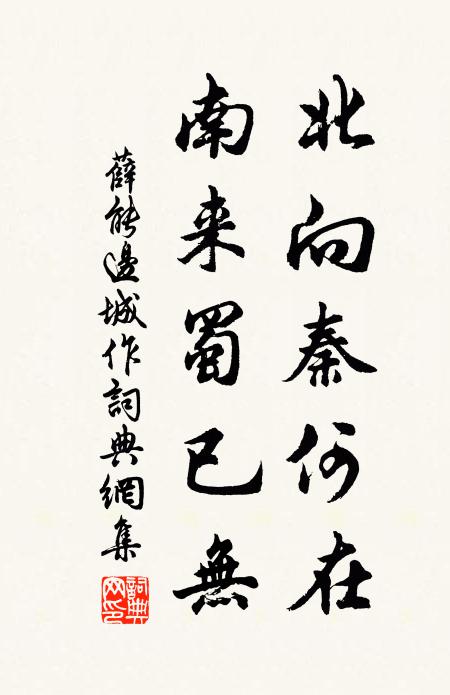 北向秦何在
南来蜀已無
薛能邊城作詞典網集
詞典網印